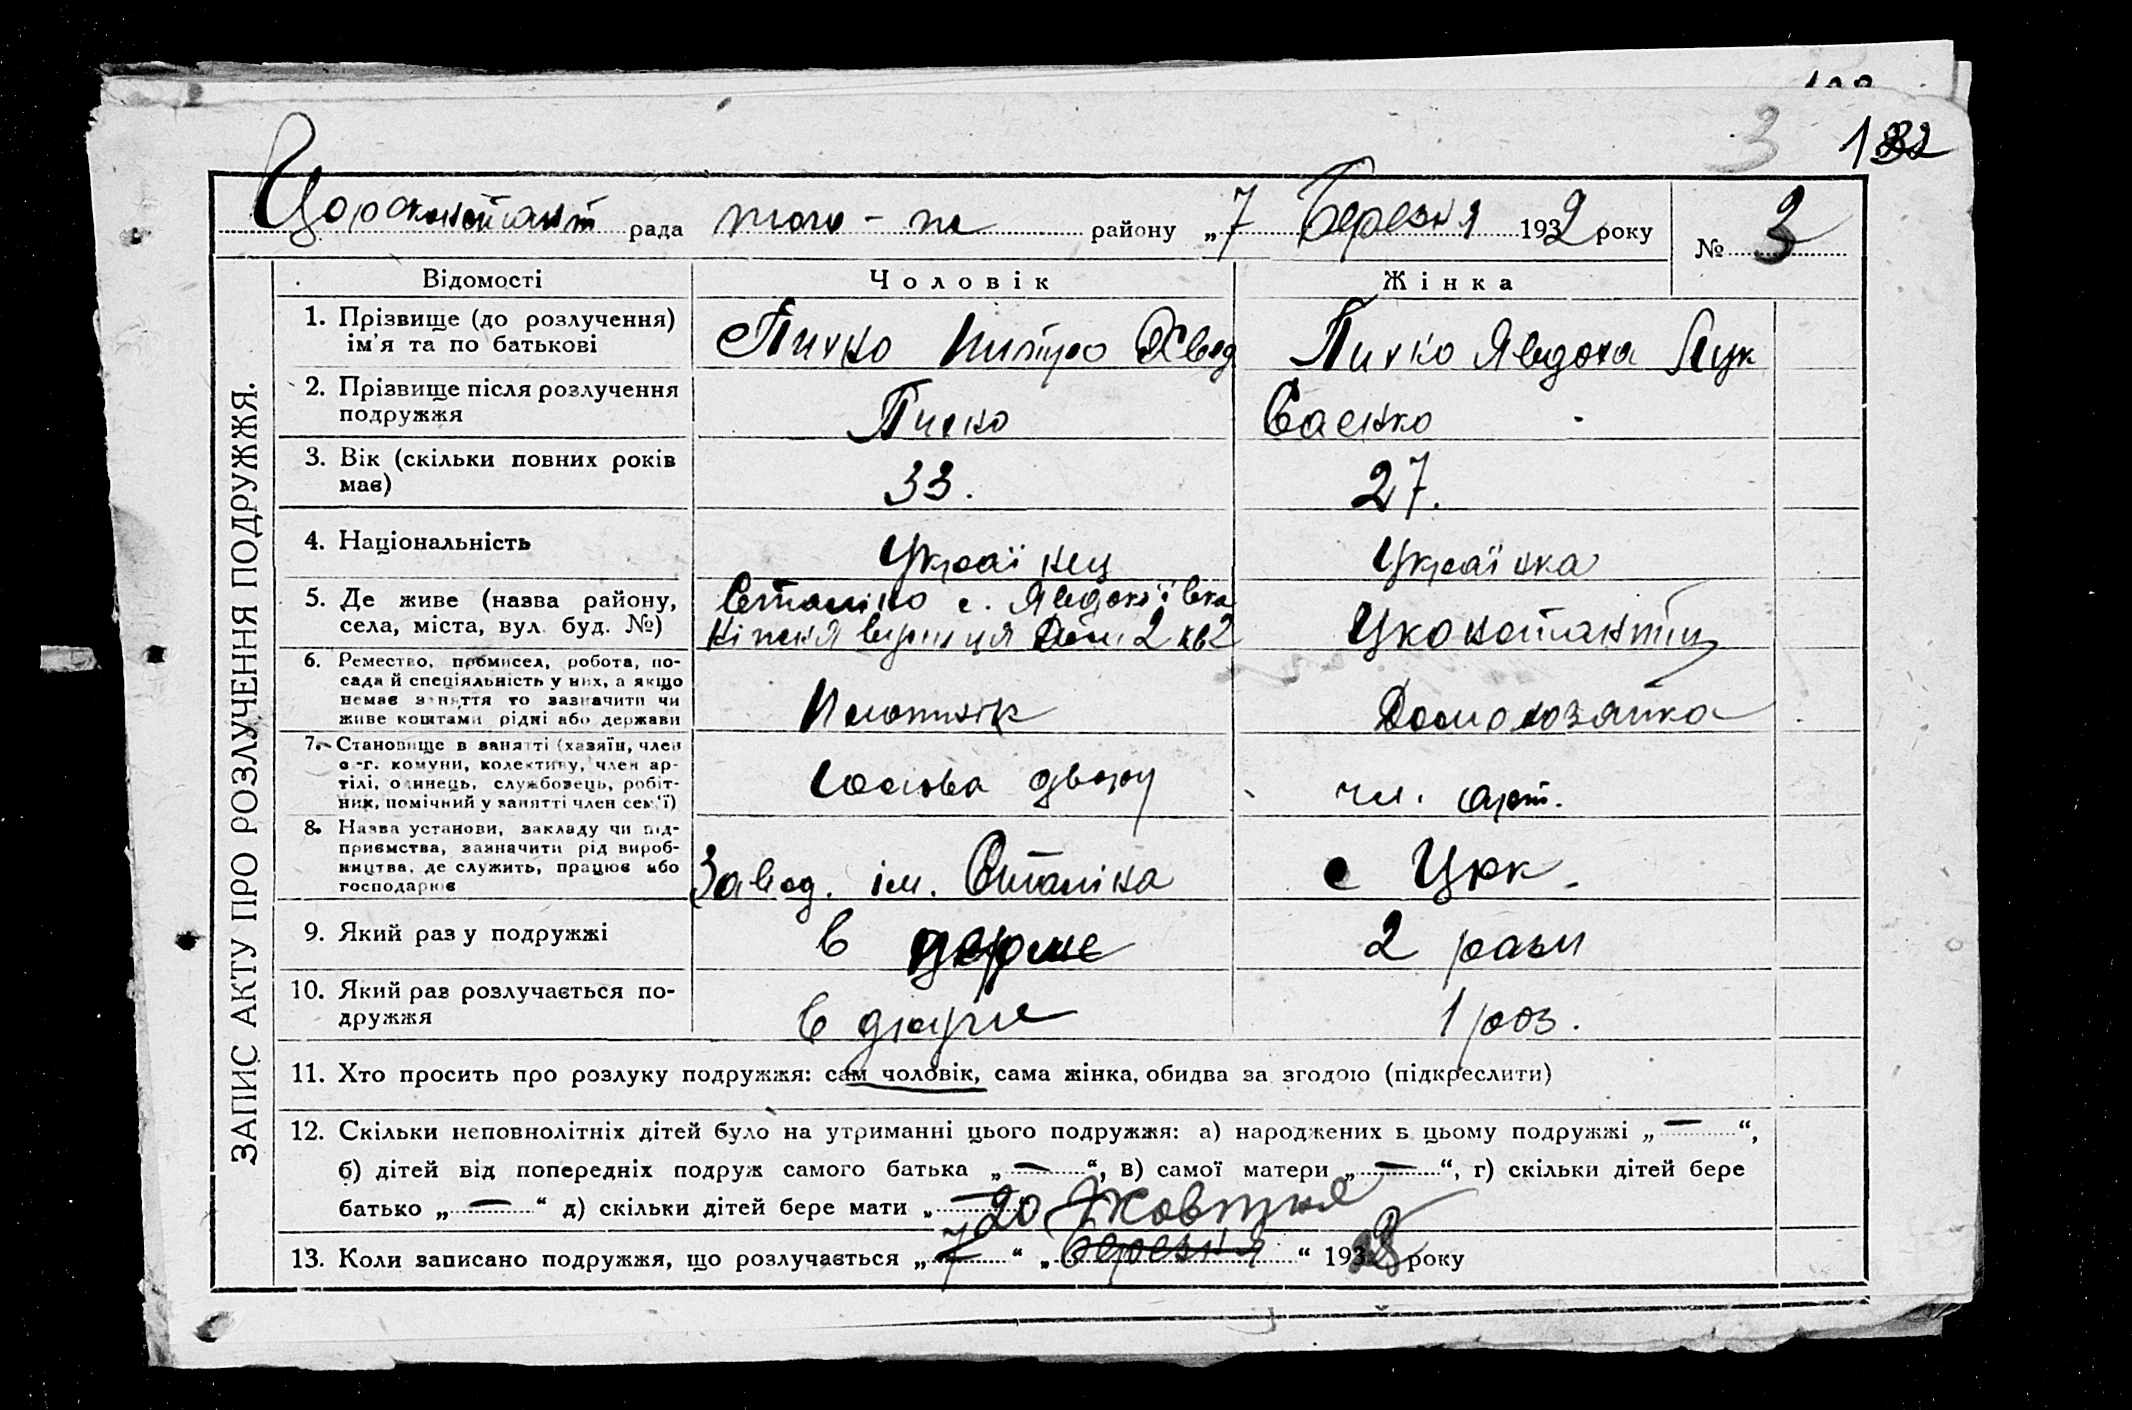 3 132
рада того-не району „7 Березня 1932 року № 3
ЗАПИС АКТУ ПРО РОЗЛУЧЕННЯ ПОДРУЖЖЯ.
Відомості Чоловік Жінка
1. Прізвище (до розлучення)
ім'я та по батькові
Пичко Явдоха Лук
2. Прізвище після розлучення
подружжя
Пичко Саєнко
3. Вік (скільки повних років
має)
33. 27.
4. Національність
Українец Українка
5. Де живе (назва району,
села, міста, вул. буд. №)
Сталіно с. Явдокіївка
Дом 2 кв 2
6. Ремество, промисел, робота, по-
сада й спеціяльність у них, а якщо
немає заняття то зазначити чи
живе коштами рідні або держави
Плотнік Домохозяйка
7. Становище в занятті (хазяїн, член
с.-г. комуни, колективу, член ар-
тілі, одинець, службовець, робіт-
ник, помічний у занятті член сем'ї)
Голова двору чл. арт.
8. Назва установи, закладу чи під-
приємства, зазначити рід вироб-
ництва, де служить, працює або
господарює
Завод. ім. Сталіна с Црк.
9. Який раз у подружжі
в перше 2 рази
10. Який раз розлучається по-
дружжя
в друге 1 раз.
11. Хто просить про розлуку подружжя: сам чоловік, сама жінка, обидва за згодою (підкреслити)
12. Скільки неповнолітніх дітей було на утриманні цього подружжя: а) народжених в цьому подружжі „—“,
б) дітей від попередніх подруж самого батька „—“, в) самої матери „—“, г) скільки дітей бере
батько „—“ д) скільки дітей бере мати „—
20 Жовтня
13. Коли записано подружжя, що розлучається „7“ „Березня“ 193 року